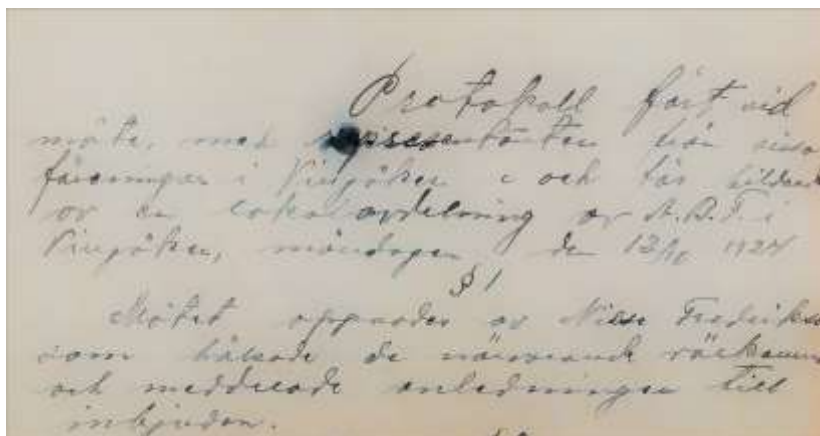 Protokoll fört vid
möte, med representanter från vissa
föreningar i Vingåker och för bildande
av en lokalavdelning av A.B.F. i
Vingåker, måndagen den 13/10 1924
§ 1
Mötet öppnades av Nils Fredriks
som hälsade de närvarande välkomm
och meddelade anledningen till
inbjudan.